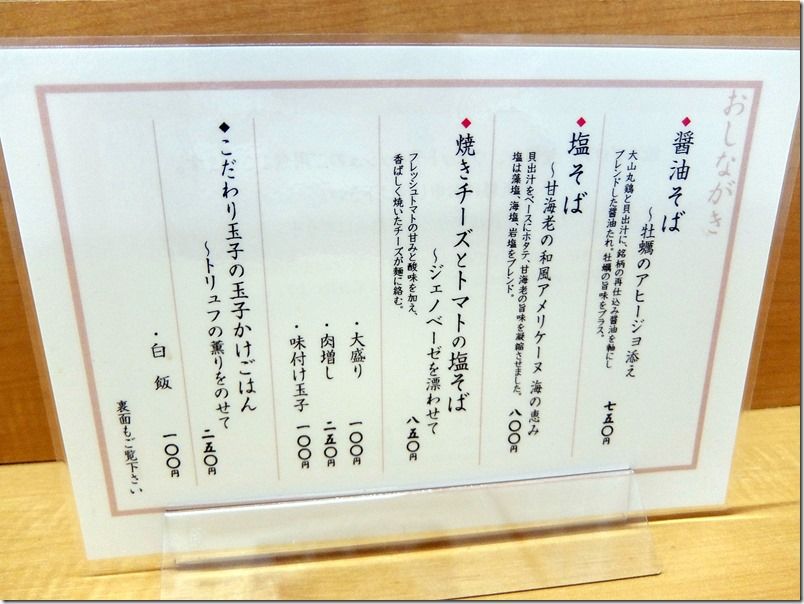 おしながき
◆醤油そば
〜牡蠣のアヒージョ添え
大山丸鶏と貝出汁に、銘柄の再仕込み醤油を軸にし
ブレンドした醤油たれ。牡蠣の旨味をプラス。
七五〇円
◆塩そば
〜甘海老の和風アメリケーヌ 海の恵み
貝出汁をベースにホタテ、甘海老の旨味を凝縮させました。
塩は藻塩、海塩、岩塩をブレンド。
八〇〇円
◆焼きチーズとトマトの塩そば
〜ジェノベーゼを漂わせて
フレッシュトマトの甘みと酸味を加え、
香ばしく焼いたチーズが麺に絡む。
八五〇円
・大盛り 一〇〇円
・肉増し 二五〇円
・味付け玉子 一〇〇円
◆こだわり玉子の玉子かけごはん
〜トリュフの薫りをのせて
二五〇円
・白飯 一〇〇円
裏面もご覧下さい